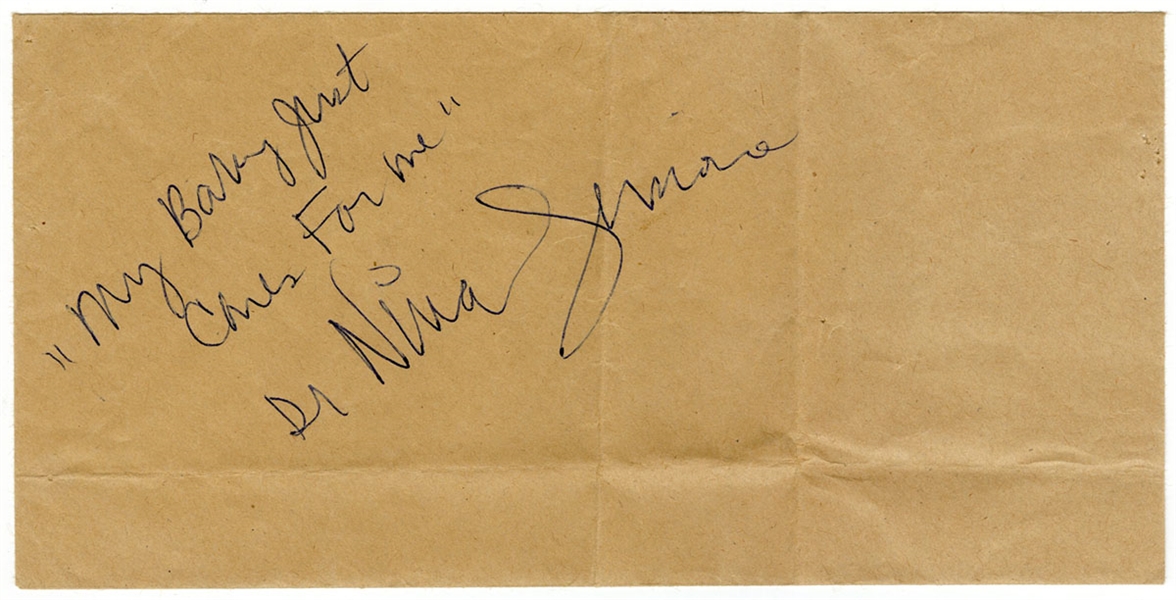 "My Baby Just
Cares For me"
Dr Nina Simone